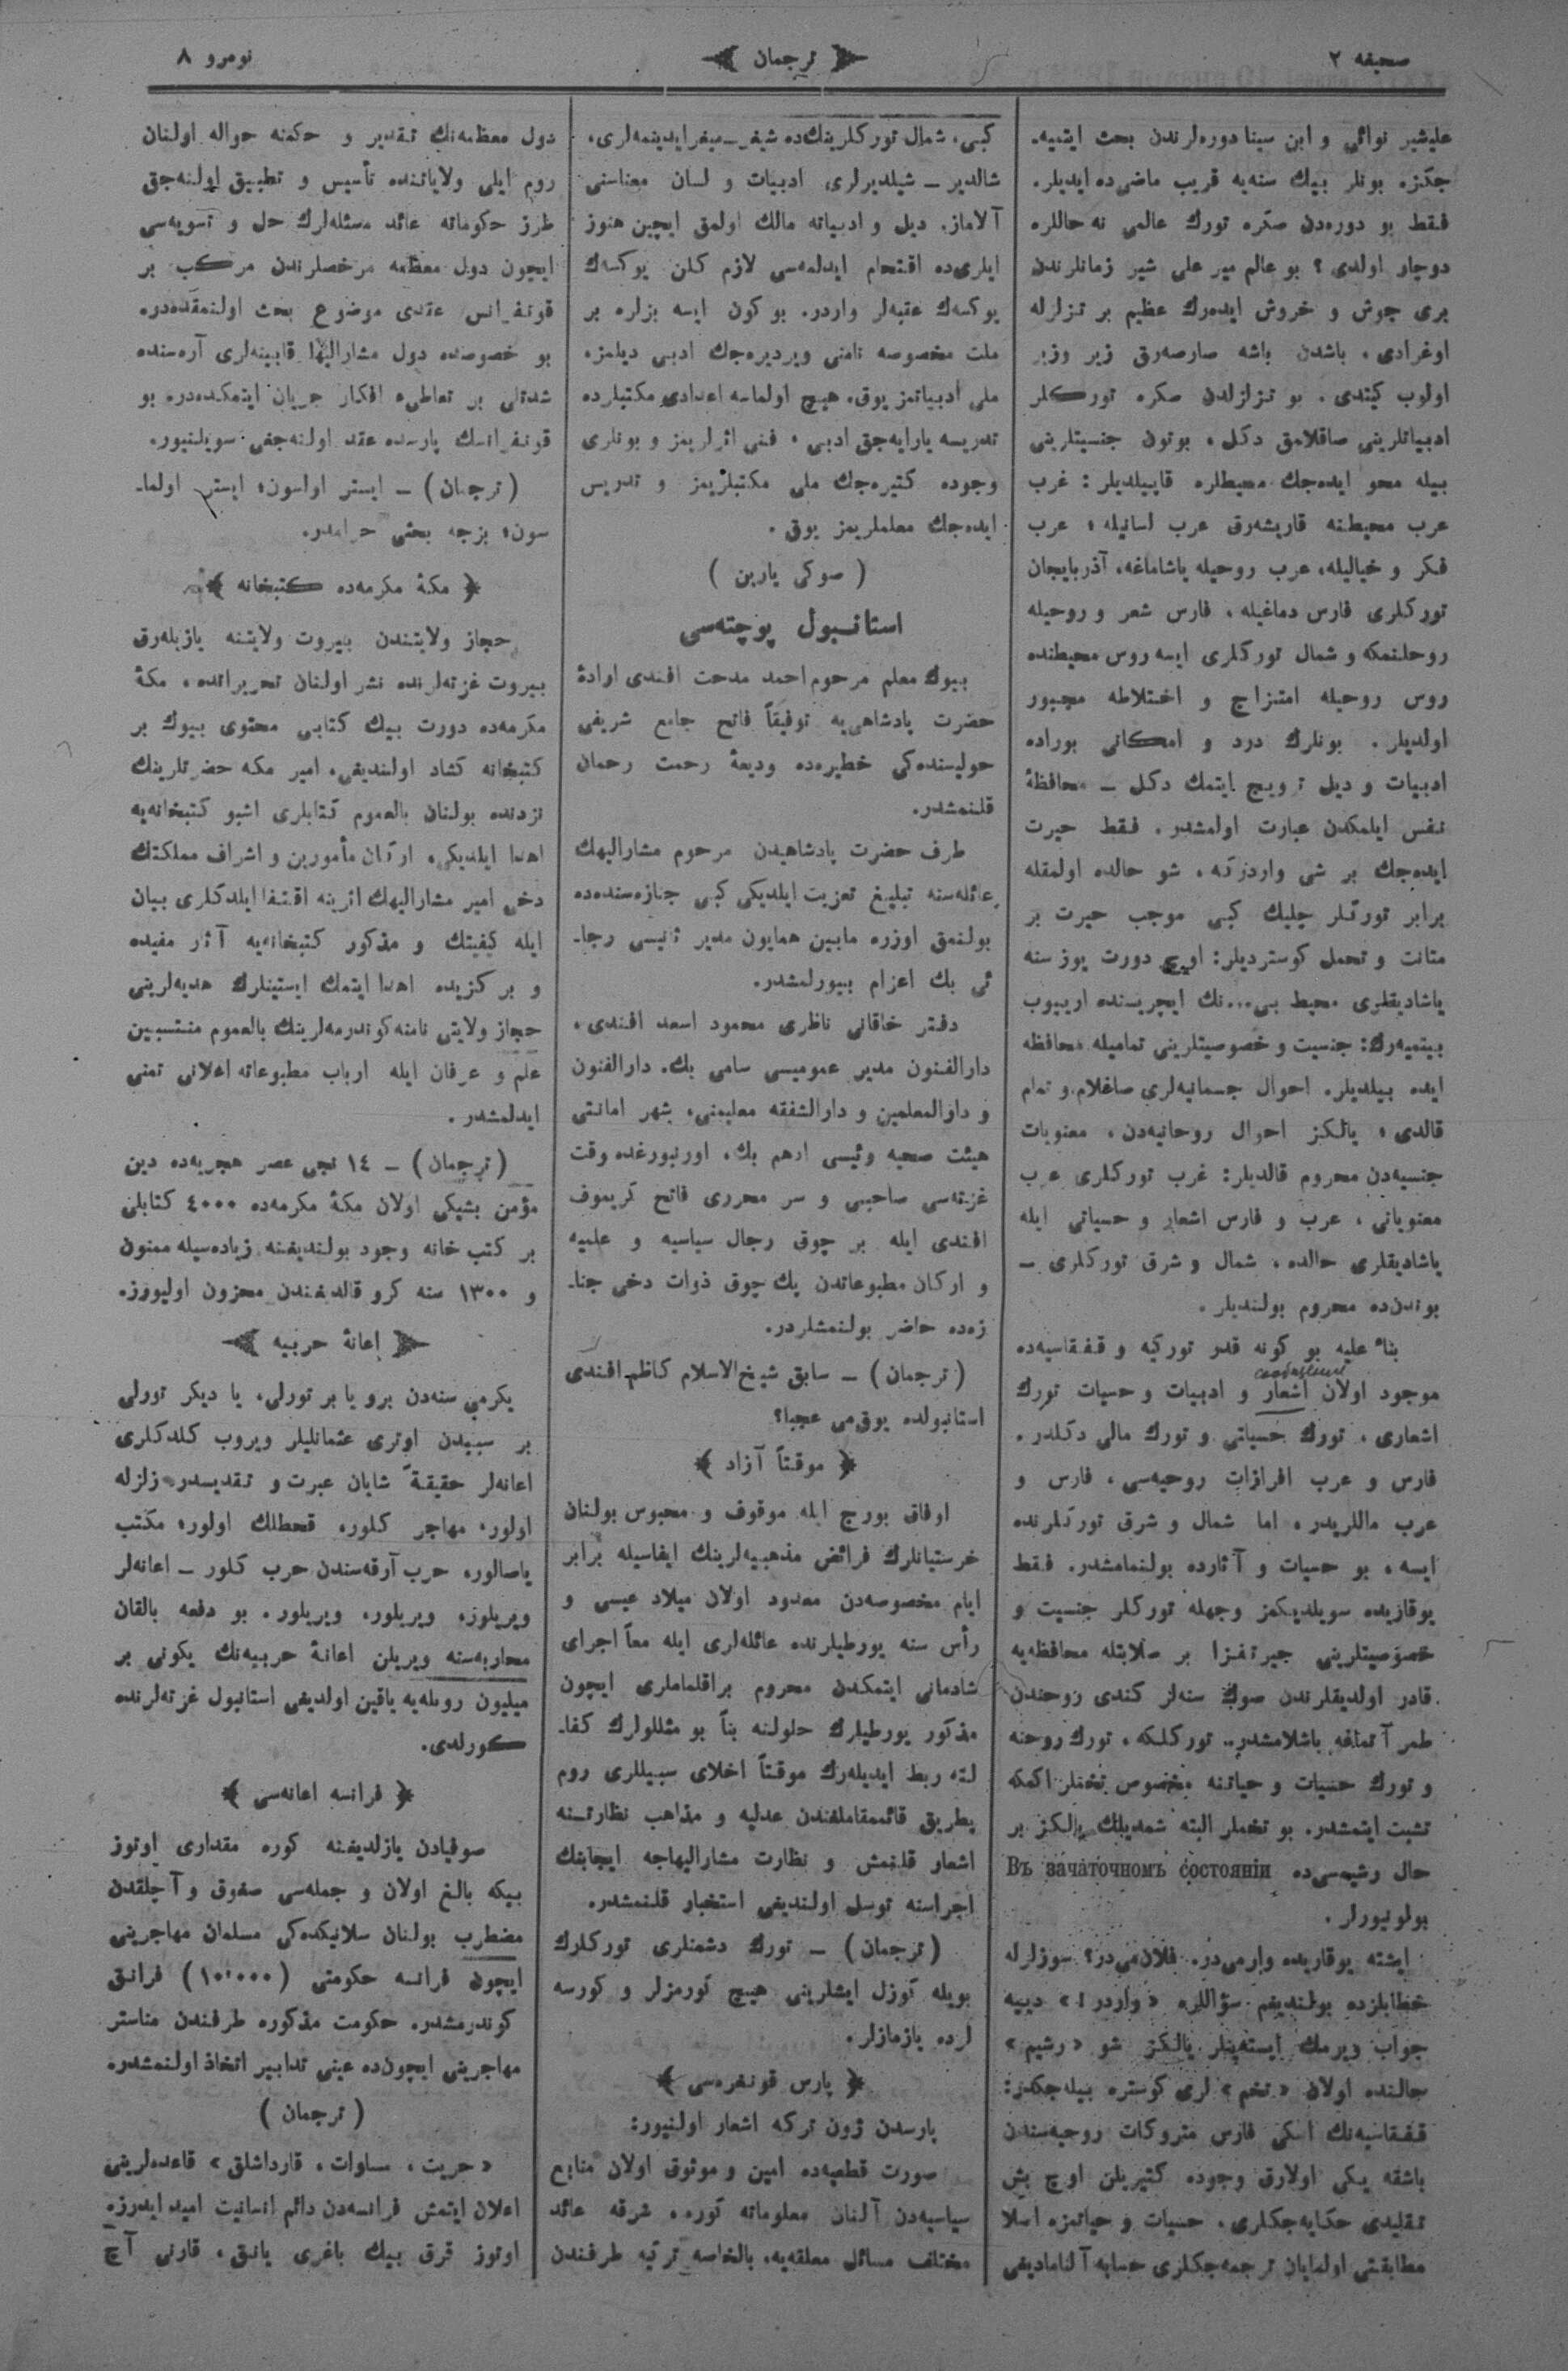 صحیفه ٢
ترجمان
نومرو ٨
علیشیر نوائی و ابن سینا دوره‌لرندن بحث ایتمیه‌
جكز. بونلر بیك سنه‌یه قریب ماضی‌ده ایدیلر.
فقط بو دوره‌دن صكره تورك عالمی نه حاللره
دوچار اولدی؟ بو عالم میر علی شیر زمانلرندن
بری جوش و خروش ایده‌رك عظیم بر تزلزله
اوغرادی، باشدن باشه صارصه‌رق زیر وزبر
اولوب كیتدی. بو تزلزلدن صكره توركلر
ادبیاتلرینی صاقلامق دكل، بوتون جنسیتلرینی
بیله محو ایده‌جك محیطلره قاپیلدیلر: غرب
عرب محیطنه قاریشه‌رق عرب لسانیله، عرب
فكر و خیالیله، عرب روحیله یاشاماغه، آذربایجان
توركلری فارس دماغیله، فارس شعر و روحیله
روحلنمكه و شمال توركلری ایسه روس محیطنده
روس روحیله امتزاج و اختلاطه مجبور
اولدیلر. بونلرك درد و امكانی بوراده
ادبیات و دیل ترویج ایتمك دكل ـ محافظهٔ
نفس ایلمكدن عبارت اولمشدر. فقط حیرت
ایده‌جك بر شی واردركه، شو حالده اولمقله
برابر توركلر چلیك كبی موجب حیرت بر
متانت و تحمل كوستردیلر: اوچ دورت یوز سنه
یاشادیقلری محیط بی...نك ایچریسنده اریوب
بیتمیه‌رك: جنسیت و خصوصیتلرینی تمامیله محافظه
ایده بیلدیلر. احوال جسمانیه‌لری صاغلام و تمام
قالدی، یالكز احوال روحانیه‌دن، معنویات
جنسیه‌دن محروم قالدیلر: غرب توركلری عرب
معنویاتی، عرب و فارس اشعار و حسیاتی ایله
یاشادیقلری حالده، شمال و شرق توركلری ـ
بوندن‌ده محروم بولندیلر.
بناء علیه بو كونه قدر توركیه و قفقاسیه‌ده
موجود اولان اشعار و ادبیات و حسیات تورك
اشعاری، تورك حسیاتی و تورك مالی دكلدر.
فارس و عرب افرازات روحیه‌سی، فارس و
عرب ماللریدر. اما شمال و شرق توركلرنده
ایسه، بو حسیات و آثارده بولنمامشدر. فقط
یوقاریده سویلدیكمز وجهله توركلر جنسیت و
خصوصیتلرینی حیرتفزا بر صلابتله محافظه‌یه
قادر اولدیقلرندن صوك سنه‌لر كندی روحندن
طمر آتماغه باشلامشدر.. توركلكه، تورك روحنه
و تورك حسیات و حیاتنه مخصوص تخملر اكمكه
تشبث ایتمشدر. بو تخملر البته شمدیلك یالكز بر
حال رشیمی‌ده Въ зачаточномъ состоянiи
بولونیورلر.
ایشته یوقاریده وارمی‌در. فلان‌می‌در؟ سوزلرله
خطابلرزده بولندیغم سؤاللره «واردر!» دییه
جواب ویرمك ایسته‌ینلر یالكز شو «رشیم»
حالنده اولان «تخم» لری كوستره بیله‌جكدر:
قفقاسیه‌نك اسكی فارس متروكات روحیه‌سندن
باشقه یكی اولارق وجوده كتیریلن اوچ بش
تقلیدی حكایه‌جكلری، حسیات و حیاتمزه اصلا
مطابقتی اولمایان ترجمه‌جكلری حسابه آلنامادیغی
كبی، شمال توركلرینك‌ده شیغر ـ میغر ایدینمه‌لری،
شالدیر ـ شیلدیرلری ادبیات و لسان معناسنی
آلاماز. دیل و ادبیاته مالك اولمق ایچین هنوز
ایلری‌ده اقتحام ایدلمه‌سی لازم كلن یوكسك
یوكسك عقبه‌لر واردر. بو كون ایسه بزلره بر
ملت مخصوصه نامنی ویردیره‌جك ادبی دیلمز،
ملی ادبیاتمز یوق. هیچ اولماسه اعدادی مكتبلرده
تدریسه یارایه‌جق ادبی، فنی اثرلریمز و بونلری
وجوده كتیره‌جك ملی مكتبلریمز و تدریس
ایده‌جك معلملریمز یوق.
(صوكی یارین)
استانبول پوچته‌سی
بیوك معلم مرحوم احمد مدحت افندی ارادهٔ
حضرت پادشاهی‌یه توفیقاً فاتح جامع شریفی
حولیسنده‌كی خطیره‌ده ودیعهٔ رحمت رحمان
قلنمشدر.
طرف حضرت پادشاهیدن مرحوم مشارالیهك
عائله‌سنه تبلیغ تعزیت ایلدیكی كبی جنازه‌سنده‌ده
بولنمق اوزره مابین همایون مدیر ثانیسی رجا‌
ئی بك اعزام بیورلمشدر.
دفتر خاقانی ناظری محمود اسعد افندی،
دارالفنون مدیر عمومیسی سامی بك. دارالفنون
و دارالمعلمین و دارالشفقه معلیمنی، شهر امانتی
هیئت صحیه رئیسی ادهم بك، اورنبورغده وقت
غزته‌سی صاحبی و سر محرری فاتح كریموف
افندی ایله بر چوق رجال سیاسیه و علمیه
و اركان مطبوعاتدن پك چوق ذوات دخی جنا‌
زه‌ده حاضر بولنمشلردر.
(ترجمان) ـ سابق شیخ‌الاسلام كاظم افندی
استانبولده یوق‌می عجبا؟
موقتاً آزاد
اوفاق بورج ایله موقوف و محبوس بولنان
خرستیانلرك فرائض مذهبیه‌لرینك ایفاسیله برابر
ایام مخصوصه‌دن معدود اولان میلاد عیسی و
رأس سنه یورطیلرنده عائله‌لری ایله معاً اجرای
شادمانی ایتمكدن محروم براقلماملری ایچون
مذكور یورطیلرك حلولنه بناً بو مثللولرك كفا‌
لته ربط ایدیله‌رك موقتاً اخلای سبیللری روم
پطریق قائممقاملغندن عدلیه و مذاهب نظارتنه
اشعار قلنمش و نظارت مشارالیهاجه ایجابنك
اجراسنه توسل اولندیغی استخبار قلنمشدر.
(ترجمان) ـ تورك دشمنلری توركلرك
بویله كوزل ایشلرینی هیچ كورمزلر و كورسه
لرده یازمازلر.
پارس قونفره‌سی
پارسدن ژون تركه اشعار اولنیور:
صورت قطعیه‌ده امین و موثوق اولان منابع
سیاسیه‌دن آلنان معلوماته كوره، شرقه عائد
مختلف مسائل معلقه‌یه، بالخاصه تركیه طرفندن
دول معظمه‌نك تقدیر و حكمنه حواله اولنان
روم ایلی ولایاتنده تأسیس و تطبیق اولنه‌جق
طرز حكوماته عائد مسئله‌لرك حل و تسویه‌سی
ایچون دول معظمه مرخصلرندن مركب بر
قونفرانس عقدی موضوع بحث اولنمقده‌در.
بو خصوصده دول مشارالیها قابینه‌لری آره‌سنده
شدتلی بر تعاطیء افكار جریان ایتمكده‌در. بو
قونفرانسك پارسده عقد اولنه‌جغی سویلنیور.
(ترجمان) ـ ایستر اولسون، ایستر اولما‌
سون، بزجه بحثی حرامدر.
مكهٔ مكرمه‌ده كتبخانه
حجاز ولایتندن بیروت ولایتنه یازیله‌رق
بیروت غزته‌لرنده نشر اولنان تحریراتده، مكهٔ
مكرمه‌ده دورت بیك كتابی محتوی بیوك بر
كتبخانه كشاد اولندیغی، امیر مكه حضرتلرینك
نزدنده بولنان بالعموم كتابلری اشبو كتبخانه‌یه
اهدا ایلدیكی، اركان مأمورین و اشراف مملكتك
دخی امیر مشارالیهك اثرینه اقتفا ایلدكلری بیان
ایله كیفیتك و مذكور كتبخانه‌یه آثار مفیده
و بر كزیده اهدا ایتمك ایستینلرك هدیه‌لرینی
حجاز ولایتی نامنه كوندرمه‌لرینك بالعموم منتسبین
علم و عرفان ایله ارباب مطبوعاته اعلانی تمنی
ایدلمشدر.
(ترجمان) ـ ١٤ نجی عصر هجریه‌ده دین
مؤمن بشیكی اولان مكهٔ مكرمه‌ده ٤٠٠٠ كتابلی
بر كتب خانه وجود بولندیغنه زیاده‌سیله ممنون
و ١٣٠٠ سنه كرو قالدیغندن محزون اولیورز.
إعانهٔ حربیه
یكرمی سنه‌دن برو یا بر تورلی، یا دیكر تورلی
بر سببدن اوتری عثمانلیلر ویروب كلدكلری
اعانه‌لر حقیقةً شایان عبرت و تقدیسدر. زلزله
اولور، مهاجر كلور، قحطلك اولور، مكتب
یاصالور، حرب آرقه‌سندن حرب كلور ـ اعانه‌لر
ویریلور، ویریلور، ویریلور. بو دفعه بالقان
محاربه‌سنه ویریلن اعانهٔ حربیه‌نك یكونی بر
میلیون روبله‌یه یاقین اولدیغی استانبول غزته‌لرنده
كورلدی.
فرانسه اعانه‌سی
صوفیادن یازلدیغنه كوره مقداری اوتوز
بیكه بالغ اولان و جمله‌سی صغوق و آجلقدن
مضطرب بولنان سلانیكده‌كی مسلمان مهاجرینی
ایچون فرانسه حكومتی (١٠٠٠٠) فرانق
كوندرمشدر. حكومت مذكوره طرفندن مناستر
مهاجرینی ایچون‌ده عینی تدابیر اتخاذ اولنمشدر.
(ترجمان)
«حریت، مساوات، قارداشلق» قاعده‌لرینی
اعلان ایتمش فرانسه‌دن دائم انسانیت امید ایدرز.
اوتوز قرق بیك باغری یانق، قارنی آچ